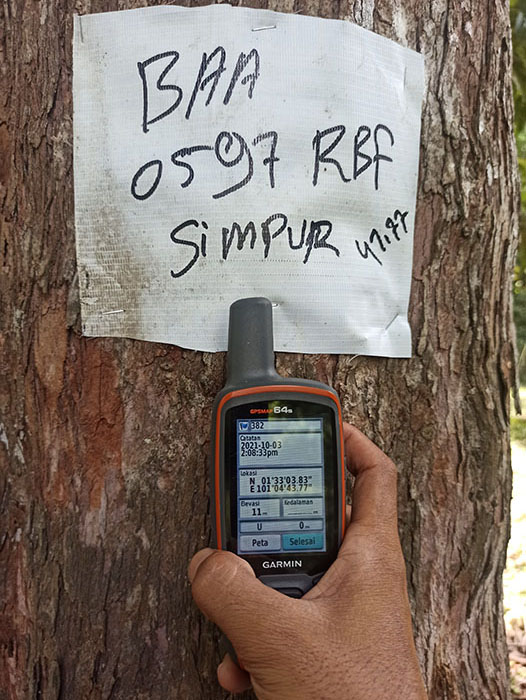 BAA
0597 RBF
SIMPUR 47.77
GPSMAP 64s
382
Catatan
2021-10-03
2:08:33pm
Lokasi
N 01°33'03.83"
E 101°04'43.77"
Elevasi Kedalaman
11m
U 0m
Peta Selesai
GARMIN